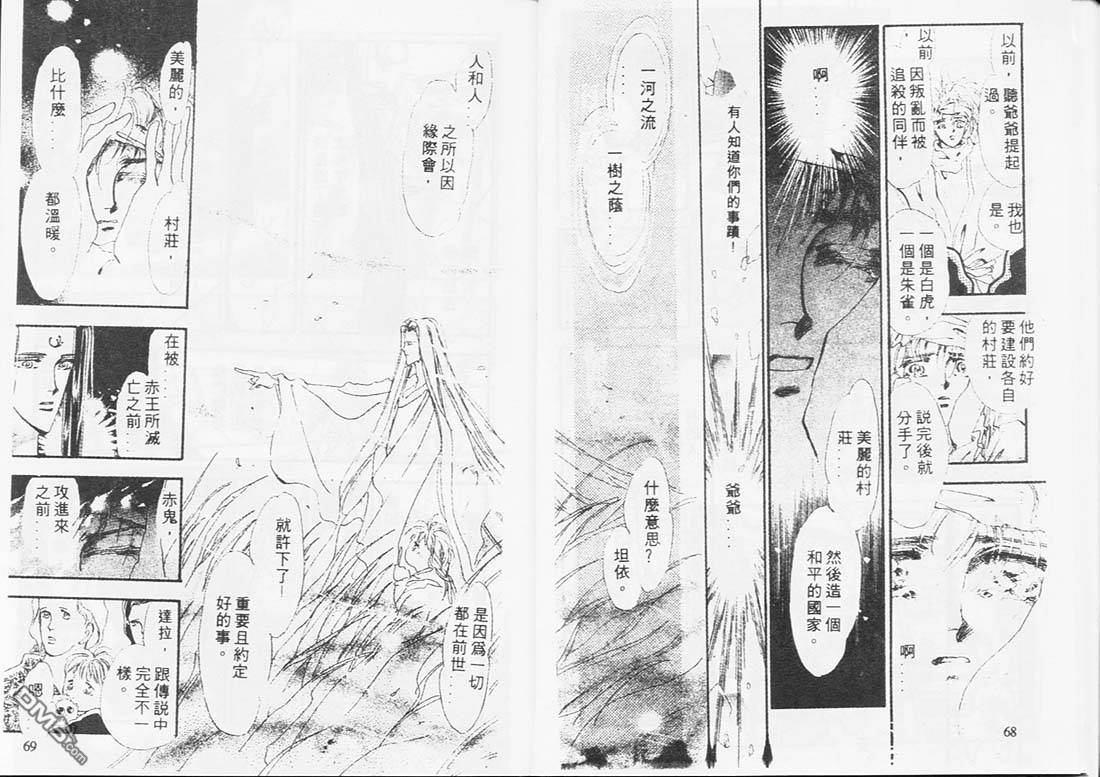 以前，聽爺爺提起
過。
我也
是。
以前，
因叛亂而被
追殺的同伴，
一個是白虎，
一個是朱雀。
他們約好
要建設各自
的村莊，
說完後就
分手了。
啊……
啊……
美麗的村
莊
然後造一個
和平的國家。
有人知道你們的事蹟！
爺爺……
一河之流
……
一樹之蔭……
什麼意思？
坦依。
68
人和人……
之所以因
緣際會，
是因為一切
都在前世
就許下了—
重要且約定
好的事。
美麗的，
村莊，
比什麼……
都溫暖。
在被……
赤王所滅
亡之前…
赤鬼，
攻進來
之前…
達拉，
跟傳說中
完全不一
樣。
嗯
69
DM5.com